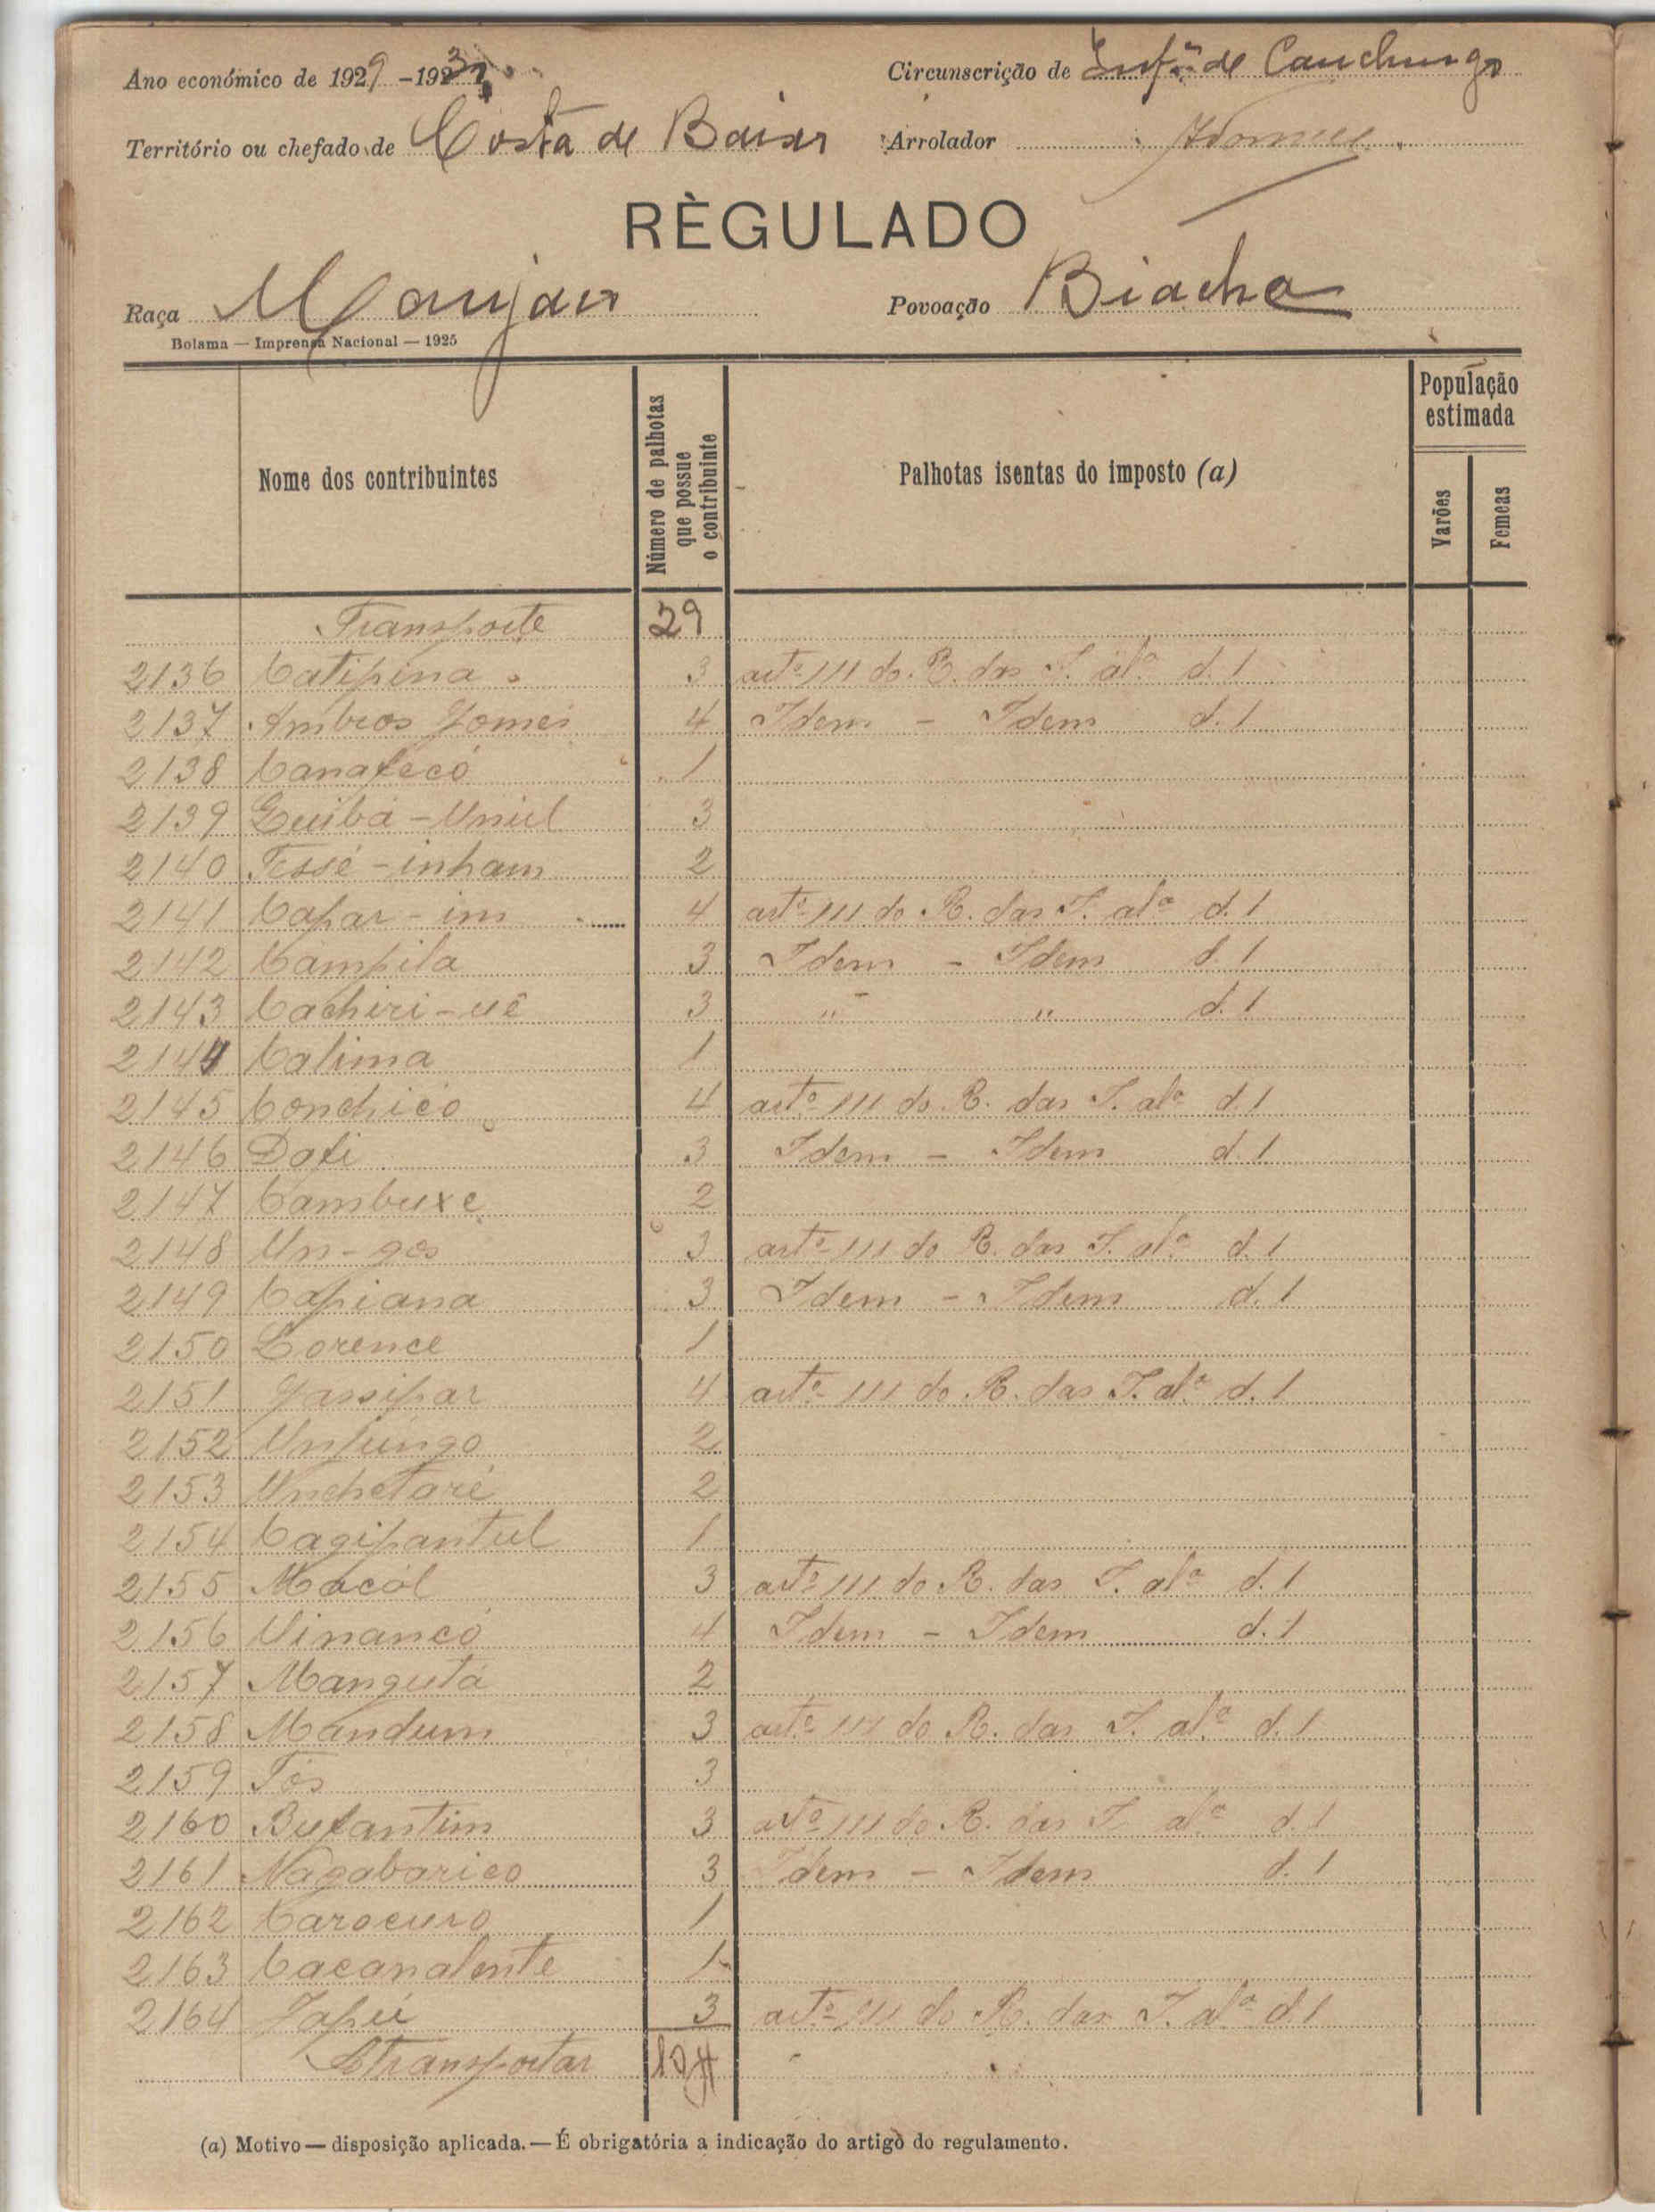 Ano económico de 1929 - 193
Circunscrição de de Canchungo
Território ou chefado de Costa de Baixo Arrolador
RÈGULADO
Raça Manjaco Povoação Biacha
Bolama — Imprensa Nacional — 1925
Nome dos contribuintes
Número de palhotas que possue o contribuinte
Palhotas isentas do imposto (a)
População estimada
Varões
Femeas
Transporte 29
2136 Catipina 3 artº 111 do R. das I. alª d. 1
2137 Ambros Gomes 4 Idem - Idem d. 1
2138 Canafecó 1
2139 Guibá - Uniel 3
2140 Tessé - inham 2
2141 Capar - im 4 artº 111 do R. das I. alª d. 1
2142 Campila 3 Idem - Idem d. 1
2143 Cachiri - uê 3 " - " d. 1
2144 Calima 1
2145 Conchico 4 artº 111 do R. das I. alª d. 1
2146 Dafi 3 Idem - Idem d. 1
2147 Cambuxe 2
2148 Un - gos 3 artº 111 do R. das I. alª d. 1
2149 Capiana 3 Idem - Idem d. 1
2150 Lorence 1
2151 Gassipar 4 artº 111 do R. das I. alª d. 1
2152 Unfungo 2
2153 Unchetaré 2
2154 Cagipantul 1
2155 Macól 3 artº 111 do R. das I. alª d. 1
2156 Uinancó 4 Idem - Idem d. 1
2157 Mangutá 2
2158 Mandum 3 artº 111 do R. das I. alª d. 1
2159 Tós 3
2160 Bufantim 3 artº 111 do R. das I. alª d. 1
2161 Nagabarico 3 Idem - Idem d. 1
2162 Carocuro 1
2163 Cacanalente 1
2164 Japú 3 artº 111 do R. das I. alª d. 1
A transportar
(a) Motivo — disposição aplicada. — É obrigatória a indicação do artigo do regulamento.